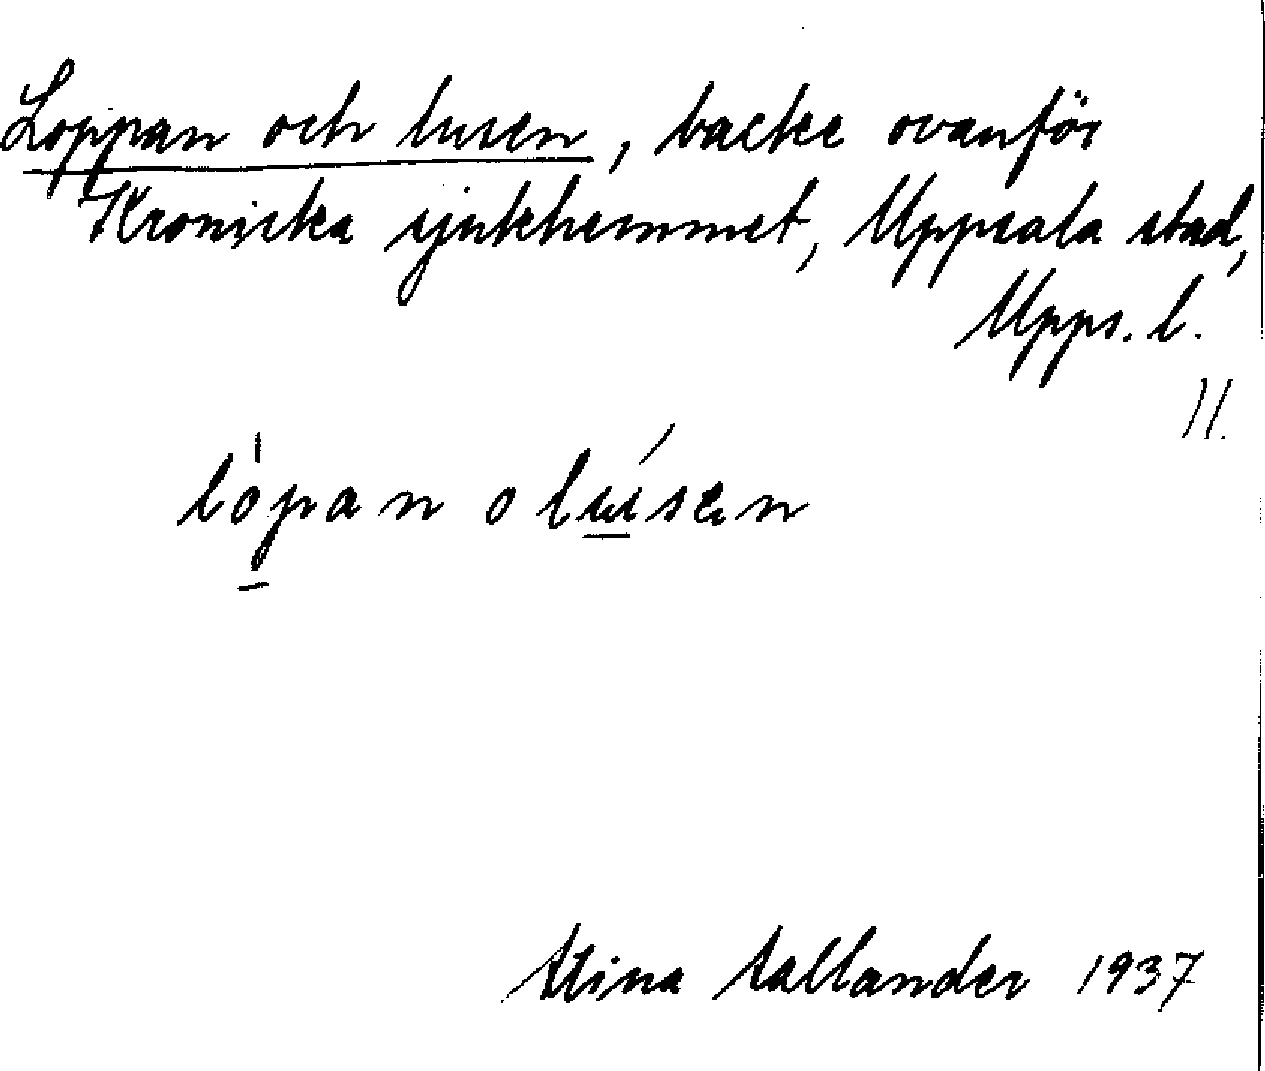 Loppan och lusen, backe ovanför
Kroniska sjukhemmet, Uppsala stad,
Upps. l.
lòpan o lúsen
Stina Tallander 1937